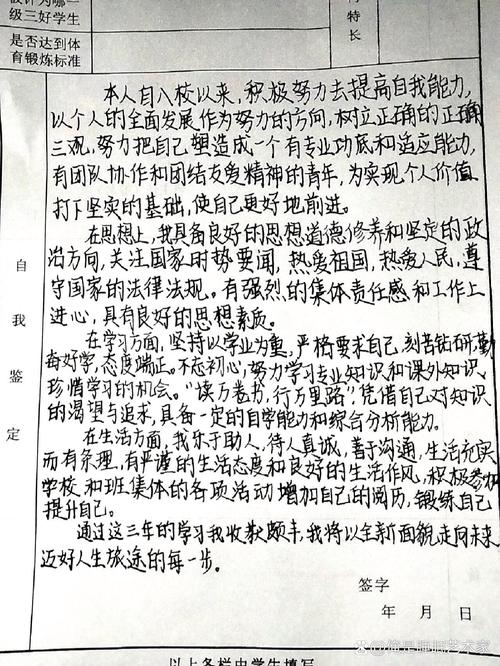 级三好学生
特长
是否达到体
育锻炼标准
自我鉴定
本人自入校以来，积极努力去提高自我能力，
以个人的全面发展作为努力的方向，树立正确的正确
三观，努力把自己塑造成一个有专业功底和适应能力，
有团队协作和团结友爱精神的青年，为实现个人价值
打下坚实的基础，使自己更好地前进。
在思想上，我具备良好的思想道德修养和坚定的政
治方向，关注国家时势要闻，热爱祖国，热爱人民，遵
守国家的法律法规。有强烈的集体责任感和工作上
进心，具有良好的思想素质。
在学习方面，坚持以学业为重，严格要求自己，刻苦钻研，勤
奋好学，态度端正。不忘初心，努力学习专业知识和课外知识，
珍惜学习的机会。“读万卷书，行万里路”凭借自己对知识
的渴望与追求，具备一定的自学能力和综合分析能力。
在生活方面，我乐于助人，待人真诚，善于沟通，生活充实
而有条理，有严谨的生活态度和良好的生活作风，积极参加
学校和班集体的各项活动增加自己的阅历，锻练自己
提升自己。
通过这三年的学习我收获颇丰，我将以全新面貌走向未来
迈好人生旅途的每一步。
签字
年 月 日
以上各栏由学生填写